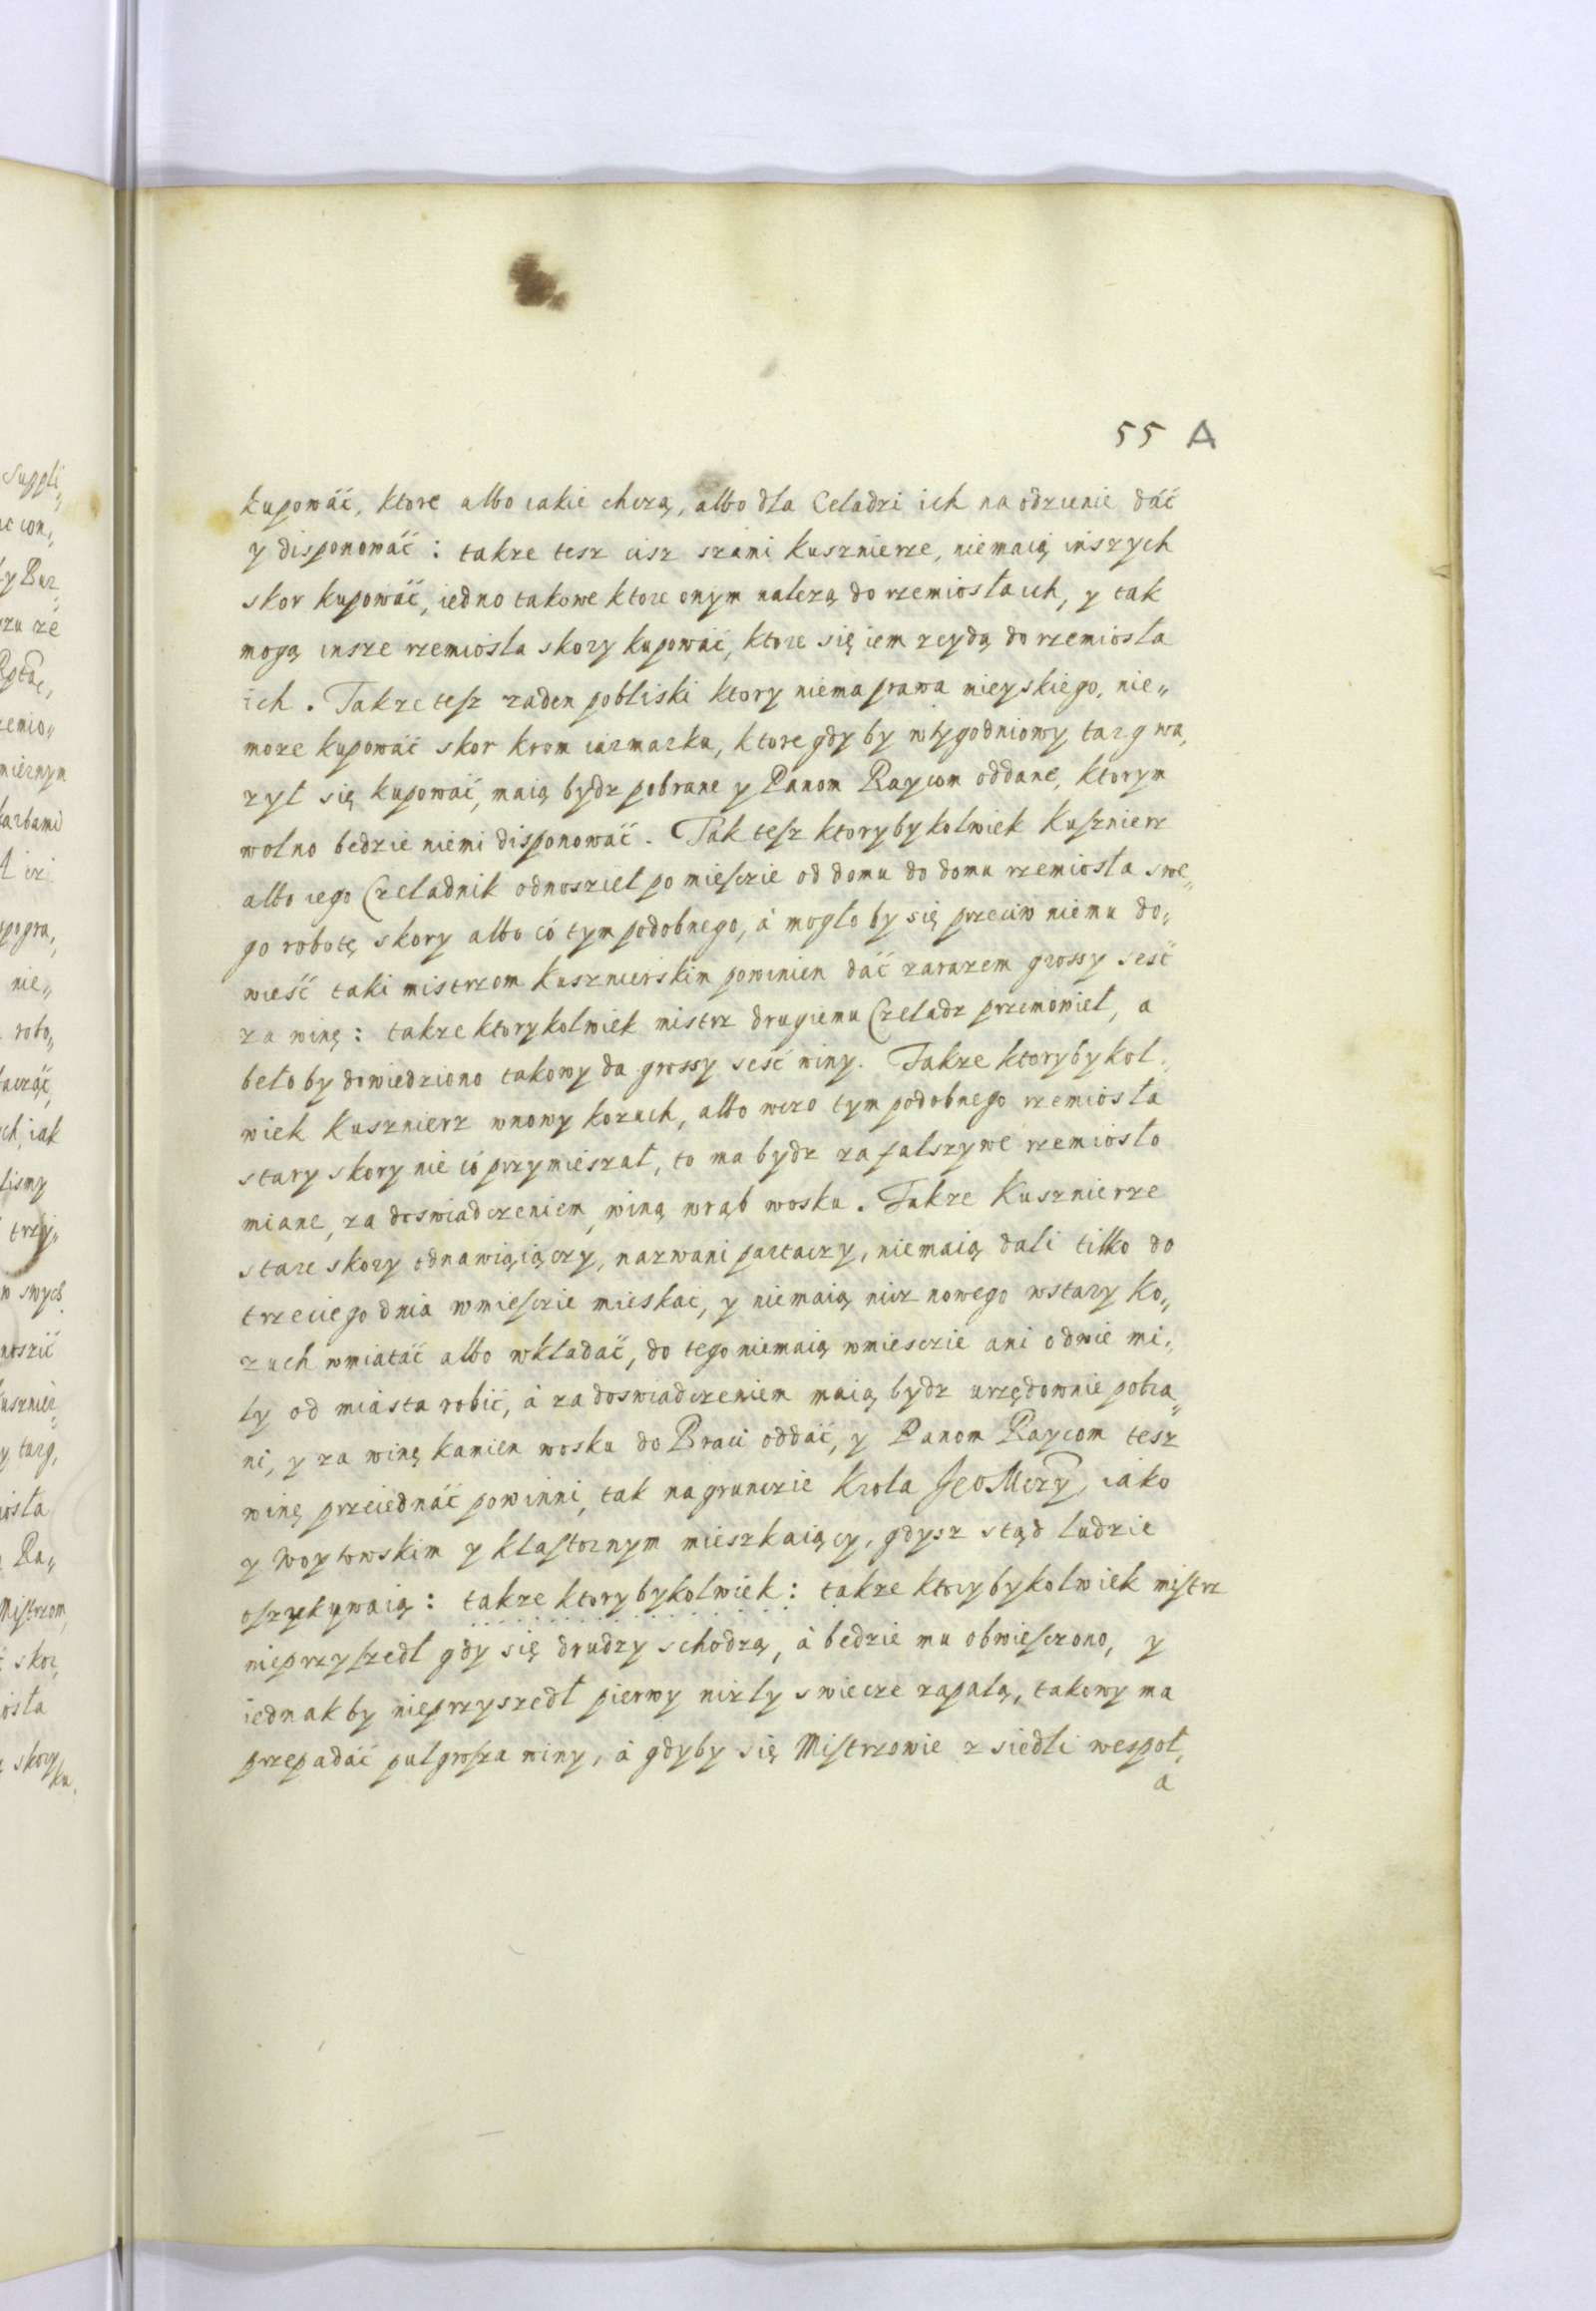 55 A
kupowáć, ktore albo iakie chczą, albo dla Celadzi ich na odzienie dáć
y disponowáć: takze tesz cisz szami kusznierze, niemaią inszych
skor kupowáć, iedno takowe ktore onym nalezą do rzemiosła ich, y tak
mogą insze rzemiosla skory kupowáć, ktore się iem zeydą do rzemiosla
ich. Takze tesz zaden pobliski ktory niema prawa mieyskiego, nie„
moze kupowáć skor krom iármarku, ktore gdy by w tygodniowy targ wa„
zyl się kupowáć, maią bydz pobrane y Panom Raycom oddane, ktorym
wolno bedzie niemi disponowáć. Tak tesz ktorybykolwiek Kusznierz
albo iego Czeladnik odnosziel po miesczie od domu do domu rzemiosla swe„
go robotę skory albo có tym podobnego, á mogło by się przeciw niemu do„
wieść taki mistrzom kusznierskim powinien dáć zarazem grossy sesć
za winę: takze ktorykolwiek mistrz drugiemu Czeladz przemowiel, a
beło by dowiedziono takowy da grossy sesć winy. Takze ktorybykol„
wiek Kusznierz wnowy kozuch, albo wczo tym podobnego rzemiosła
stary skory nie có przymieszał, to ma bydz za falszywe rzemiosło
miane, za doswiadczeniem, winą wrąb wosku. Takze Kusznierze
stare skory odnawiąiączy, nazwani partaczy, niemaią dali tilko do
trzeciego dnia wmiesczie mieskac, y niemaią nicz nowego wstary Ko„
zuch wmiatáć albo wkladáć, do tego niemaią wmiesczie ani odwie mi„
ly od miásta robić, á za doswiadczeniem maią bydz urzędownie pobra„
ni, y za winę kamien wosku do Braci oddáć, y Panom Raycom tesz
winę przeiednáć powinni, tak na grunczie Krola Jeo Mczy, iáko
y Woytowskim y klasztornym mieszkaiący, gdysz stąd ludzie
oszukywaią: takze ktorybykolwiek: takze ktorybykolwiek mistrz
nieprzyszedl gdy się drudzy schodzą, á bedzie mu obwiesczono, y
iednak by nieprzyszedł pierwy nizly swiecze zapalą, takowy ma
przepadáć pulgrosza winy, á gdyby się Mistrzowie zsiedli wespoł,
a